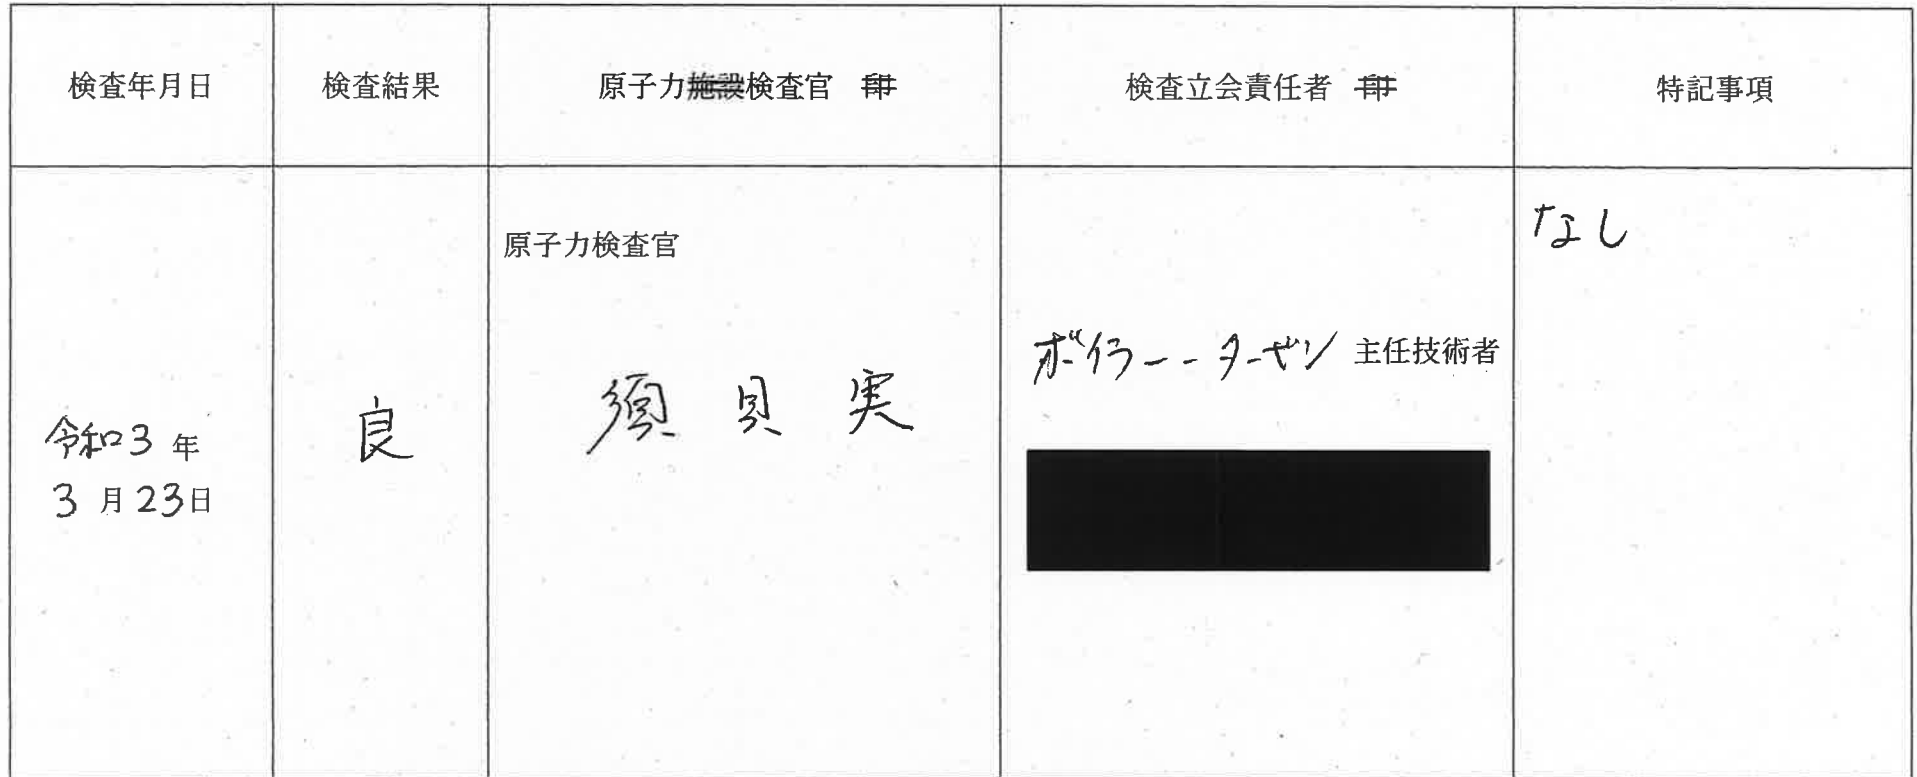 検査年月日
検査結果
原子力施設検査官 印
検査立会責任者 印
特記事項
令和3年
3月23日
良
原子力検査官
須貝実
ボイラー・タービン 主任技術者
なし